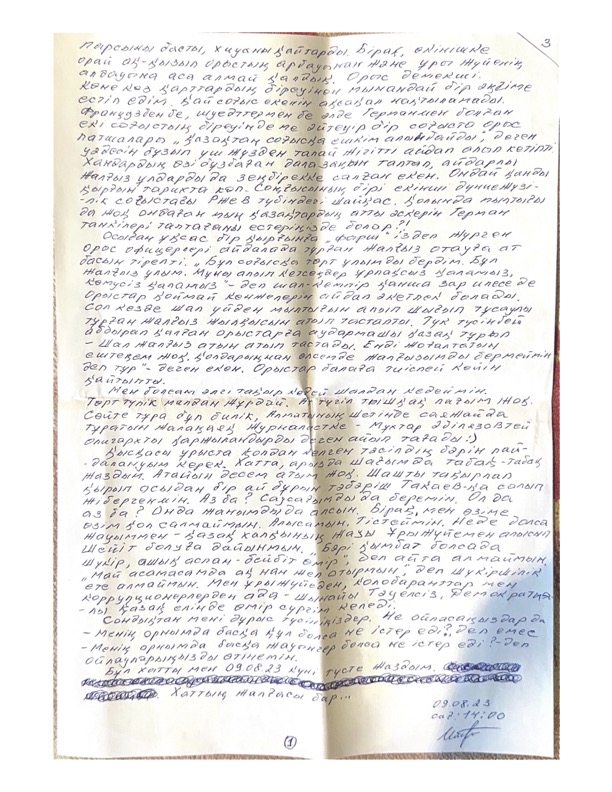 3
Парсыны басты, Хиуаны қайтарды. Бірақ, өкінішке
орай ақ-қызыл орыстың арбауынан және ұры жүйенің
алдауына аса алмай қалдық. Орыс демекші.
Көне көз қарттардың біреуінен мынандай бір әңгіме
естіп едім. Қай соғыс екенін ақсақал нақтыламады.
Французбен бе, шведттермен бе әлде Герман мен болған
екі соғыстың біреуінде ме әйтеуір бір соғыста орыс
патшалары „Қазақтан соғысқа ешкім алынбайды", деген
уәдесін бұзып үш жүзден талай жігітті айдап алып кетіпті
Хандардың өзі бұзбаған дала заңын таптап, айдарлы
жалғыз ұлдарды да зеңбірекке салған екен. Ондай қанды
қырғын тарихта көп. Соңғысының бірі екінші дүние жүзі-
-лік соғыстағы РЖЕВ түбіндегі шайқас. Қолында мылтығы
да жоқ ондаған мың қазақтардың атты әскерін Герман
танкілері таптағаны естеріңізде болар?!
Осыған ұқсас бір қырғынға „фарш" іздеп жүрген
орыс офицерлері айдалада тұрған жалғыз отауға ат
басын тірепті. „Бұл соғысқа төрт ұлымды бердім. Бұл
жалғыз ұлым. Мұны алып кетсеңдер ұрпақсыз қаламыз,
көмусіз қаламыз"- деп шал-кемпір қанша зар илесе де
орыстар қоймай кенжелерін айдап әкетпек болады.
Сол кезде шал үйден мылтығын алып шығып тұсаулы
тұрған жалғыз жылқысын атып тастапты. Түк түсінбей
абдырап қалған орыстарға аудармашы қазақ тұрып
- Шал жалғыз атын атып тастады. Енді жоғалтатын
ештеңем жоқ. Қолдарыңнан өлсемде жалғызымды бермеймін
деп тұр"- деген екен. Орыстар балаға тиіспей кейін
қайтыпты.
Мен болсам әлгі тақыр кедей шалдан кедеймін.
Төрт түлік малдан жұрдай. Ат түгіл тышқақ лағым жоқ.
Сөйте тұра бұл билік, Алматының шетінде саяжайда
тұратын жалаңаяқ журналистке - Мұхтар Әбілязовтей
олигархты қаржыландырды деген айып тағады :)
Қысқасы ұрыста қолдан келген тәсілдің бәрін пай-
-далануым керек. Хатта, арызда шағымда табақ-табақ
жаздым. Атайын десем атым жоқ. Шашты тақырлап
қырып осыдан бір ай бұрын тәбәріш Такаевқа салып
жібергенмін. Аз ба? Саусағымды да беремін. Ол да
аз ба? Онда жанымды да алсын. Бірақ, мен өзіме
өзім қол салмаймын. Алысамын. Тістеймін. Не де болса
жауыммен - қазақ халқының жауы ұры жүйемен алысып
шейіт болуға дайынмын. „Бәрі қымбат болсада
шүкір, ашық аспан - бейбіт өмір", деп айта алмаймын.
„Май асатасамда ақ нан жеп отырмын", деп шүкіршілік
ете алмаймын. Мен ұры жүйеден, колобаранттар мен
коррупционерлерден ада - шынайы Тәуелсіз, Демократия-
-лы қазақ елінде өмір сүргім келеді.
Сондықтан мені дұрыс түсініңіздер. Не ойласаңыздар да
- Менің орнымда басқа құл болса не істер еді?, деп емес
- Менің орнымда басқа жауынгер болса не істер еді?"- деп
ойлауларыңызды өтінемін.
Бұл хатты мен 09.08.23 күні түсте жаздым.
Хаттың жалғасы бар...
09.08.23
сағ: 14:00
1